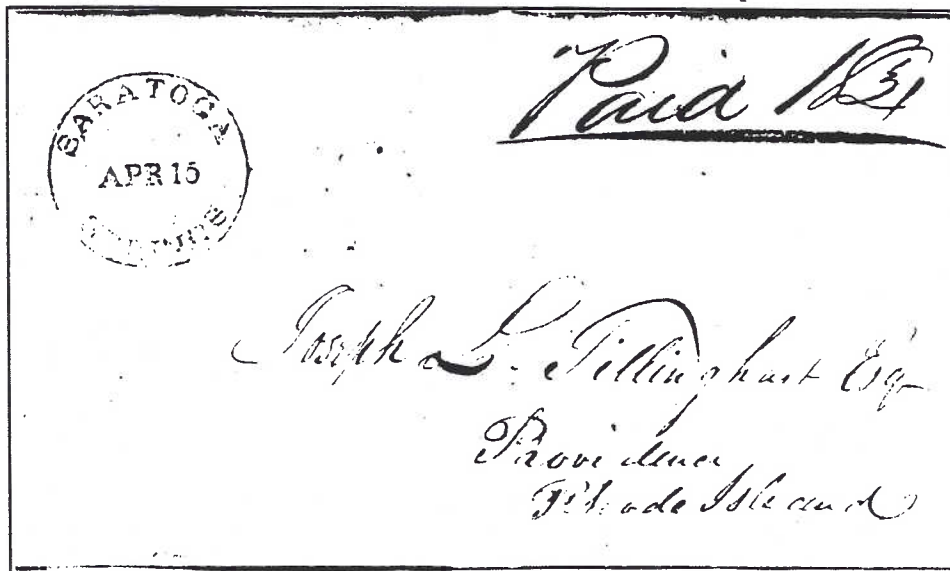 Paid 18¾
SARATOGA
APR 15
SPRINGS
Joseph L. Tillinghast Esq
Providence
Rhode Island